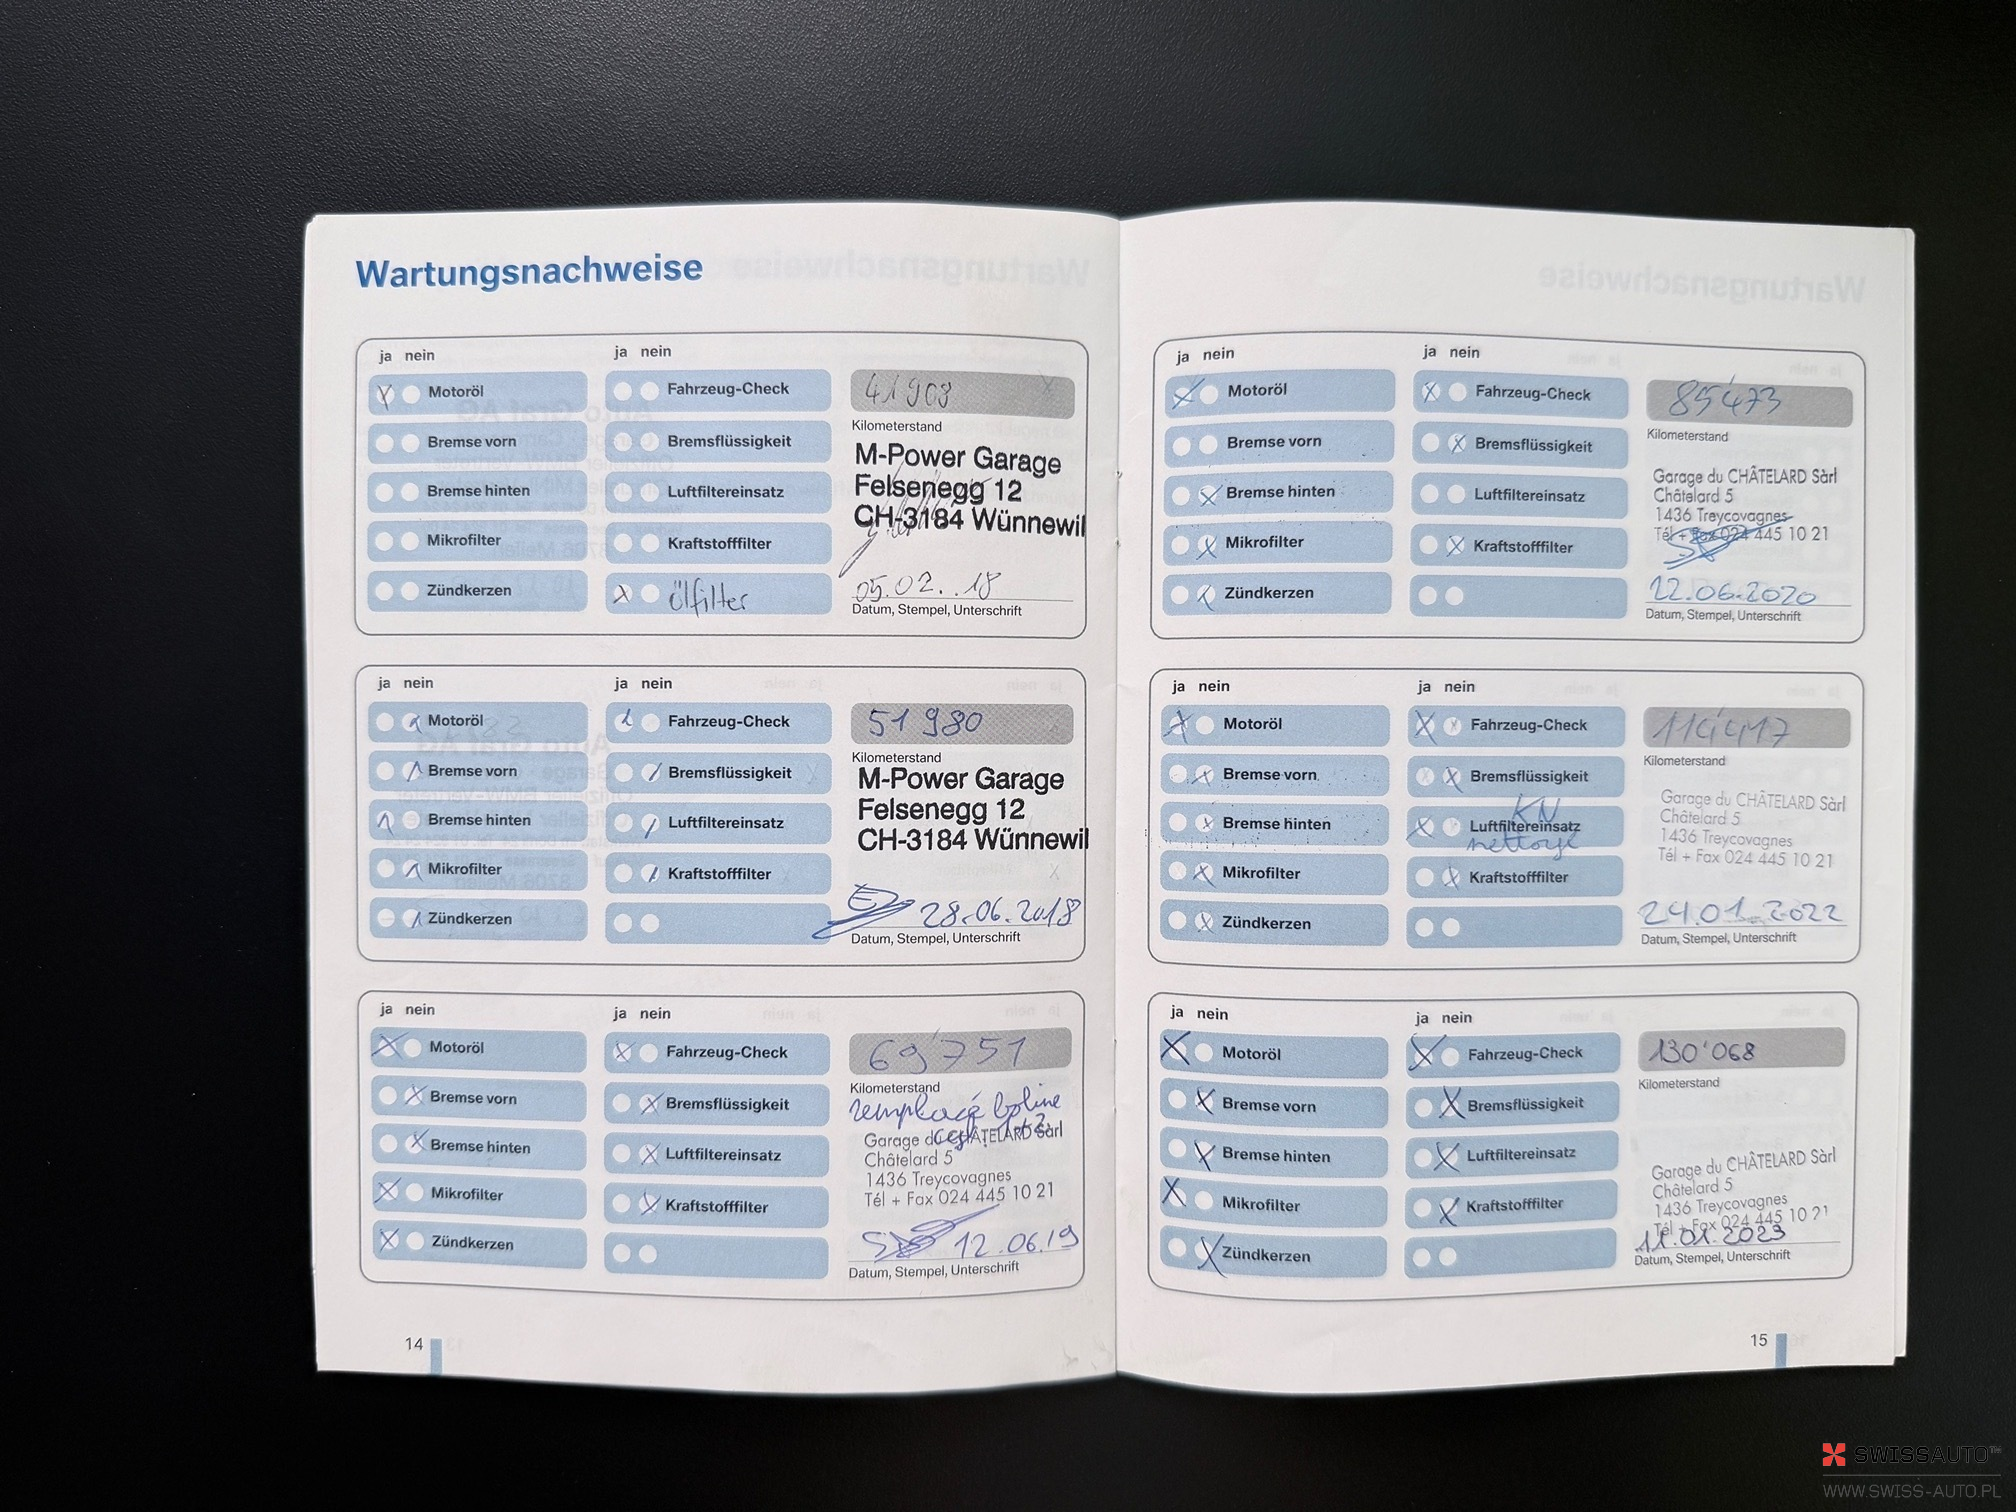 Wartungsnachweise
ja nein
Motoröl
Bremse vorn
Bremse hinten
Mikrofilter
Zündkerzen
ja nein
Fahrzeug-Check
Bremsflüssigkeit
Luftfiltereinsatz
Kraftstofffilter
Ölfilter
41908
Kilometerstand
M-Power Garage
Felsenegg 12
CH-3184 Wünnewil
05.02..18
Datum, Stempel, Unterschrift
ja nein
Motoröl
Bremse vorn
Bremse hinten
Mikrofilter
Zündkerzen
ja nein
Fahrzeug-Check
Bremsflüssigkeit
Luftfiltereinsatz
Kraftstofffilter
51980
Kilometerstand
M-Power Garage
Felsenegg 12
CH-3184 Wünnewil
28.06.2018
Datum, Stempel, Unterschrift
ja nein
Motoröl
Bremse vorn
Bremse hinten
Mikrofilter
Zündkerzen
ja nein
Fahrzeug-Check
Bremsflüssigkeit
Luftfiltereinsatz
Kraftstofffilter
69'751
Kilometerstand
remplacé bobine
Garage du CHÂTELARD Sàrl
Châtelard 5
1436 Treycovagnes
Tél + Fax 024 445 10 21
12.06.19
Datum, Stempel, Unterschrift
14
ja nein
Motoröl
Bremse vorn
Bremse hinten
Mikrofilter
Zündkerzen
ja nein
Fahrzeug-Check
Bremsflüssigkeit
Luftfiltereinsatz
Kraftstofffilter
85'473
Kilometerstand
Garage du CHÂTELARD Sàrl
Châtelard 5
1436 Treycovagnes
Tél + Fax 024 445 10 21
22.06.2020
Datum, Stempel, Unterschrift
ja nein
Motoröl
Bremse vorn
Bremse hinten
Mikrofilter
Zündkerzen
ja nein
Fahrzeug-Check
Bremsflüssigkeit
KN
Luftfiltereinsatz
nettoyé
Kraftstofffilter
114'417
Kilometerstand
Garage du CHÂTELARD Sàrl
Châtelard 5
1436 Treycovagnes
Tél + Fax 024 445 10 21
24.01.2022
Datum, Stempel, Unterschrift
ja nein
Motoröl
Bremse vorn
Bremse hinten
Mikrofilter
Zündkerzen
ja nein
Fahrzeug-Check
Bremsflüssigkeit
Luftfiltereinsatz
Kraftstofffilter
130'068
Kilometerstand
Garage du CHÂTELARD Sàrl
Châtelard 5
1436 Treycovagnes
Tél + Fax 024 445 10 21
11.01.2023
Datum, Stempel, Unterschrift
15
SWISSAUTO™
WWW.SWISS-AUTO.PL